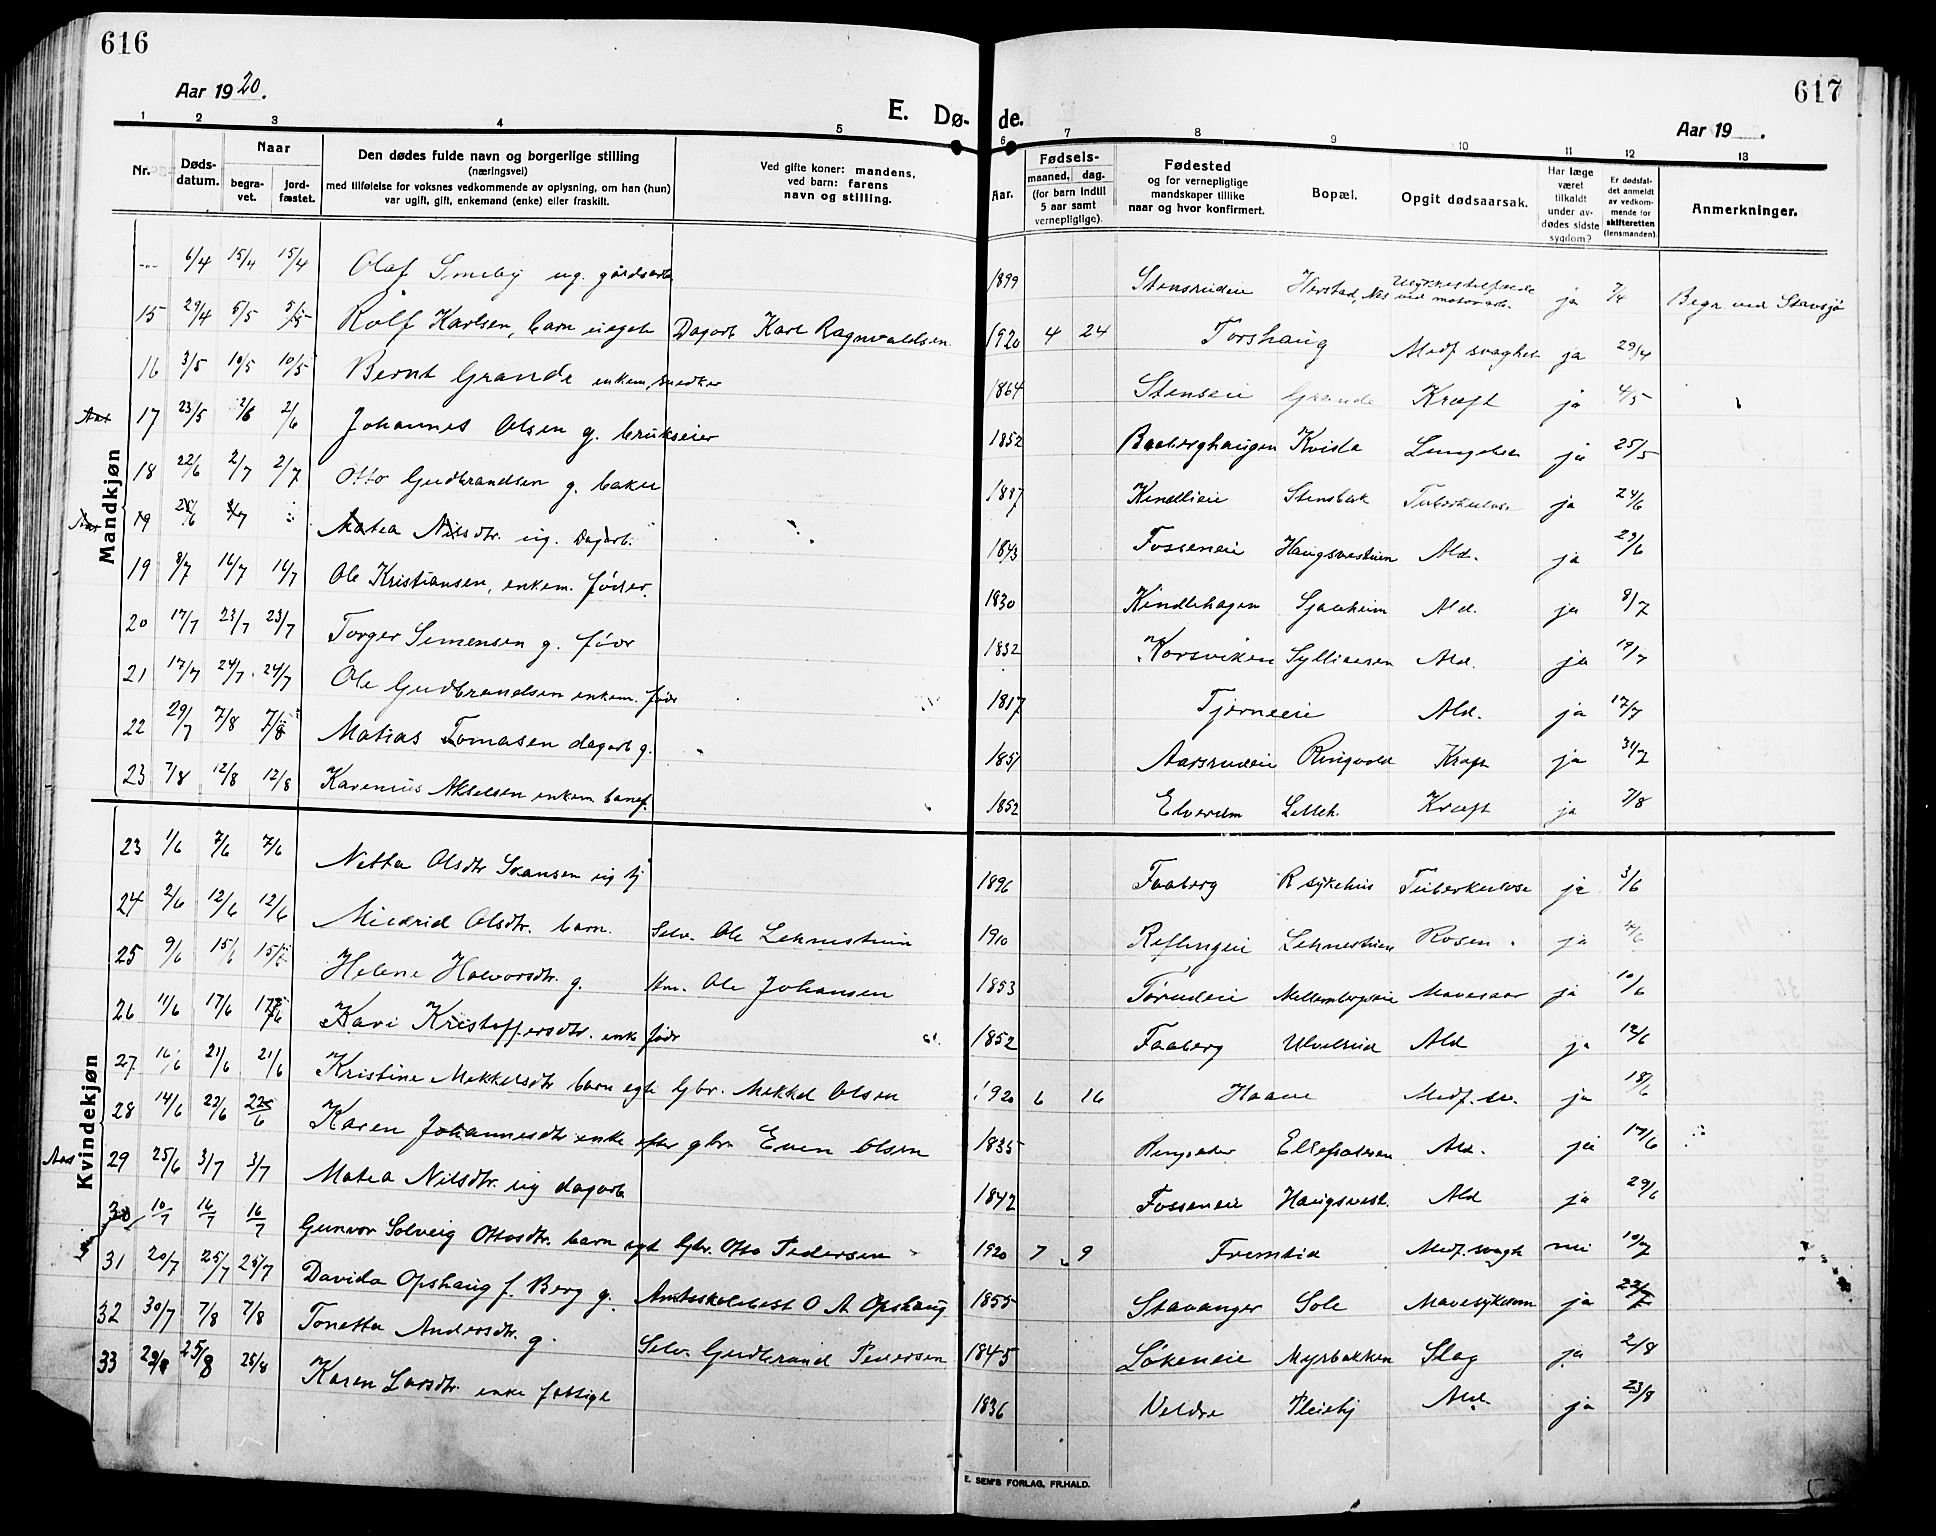 616
617
Aar 1920.
E. Dø- de.
Aar 19 .
1 2 3 4 5 6 7 8 9 10 11 12 13
Nr. Døds-datum. Naar begra-vet. jord-fæstet. Den dødes fulde navn og borgerlige stilling (næringsvei) med tilføielse for voksnes vedkommende av oplysning, om han (hun) var ugift, gift, enkemand (enke) eller fraskilt. Ved gifte koner: mandens, ved barn: farens navn og stilling. Aar. Fødsels- maaned, dag. (for barn indtil 5 aar samt vernepligtige). Fødested og for vernepligtige mandskaper tillike naar og hvor konfirmert. Bopæl. Opgit dødsaarsak. Har læge været tilkaldt under av-dødes sidste sygdom? Er dødsfal-det anmeldt av vedkom-mende for skifteretten (lensmanden). Anmerkninger.
Mandkjøn
6/4 15/4 15/4 Olaf Smeby ug. gårdsarb 1899 Stensrudeie Herstad, Nes ja 7/4 Begr ved Stavsjø
15 29/4 5/5 5/5 Rolf Karlsen, barn uegte Dagarb Karl Ragnvaldsen 1920 4 24 Torshaug Medf svaghet ja 29/4
16 3/5 10/5 10/5 Bernt Grande enkem, snedker 1864 Stenseie Grande Kræft ja 4/5
17 23/5 2/6 2/6 Johannes Olsen g. brukseier 1852 Baaberghaugen Kvisla ja 25/5
18 22/6 2/7 2/7 Otto Gudbrandsen g. baker 1887 Kindlieie Stensbak Tuberkulose ja 24/6
19 25/6 3/7 Matea Nilsdtr. ug. Dagarb. 1843 Fosseneie Haugsvestuen Ald. ja 29/6
19 8/7 16/7 16/7 Ole Kristiansen, enkem. føder. 1830 Kindlehagen Sjaaheim Ald. ja 8/7
20 17/7 23/7 23/7 Torger Simensen g. fødr 1832 Korsviken Ald. ja 19/7
21 17/7 24/7 24/7 Ole Gudbrandsen enkem. fødr 1817 Tjerneeie Ald. ja 17/7
22 29/7 7/8 7/8 Matias Tomasen dagarb g. 1851 Aarsrudeie Ringvold Kræft ja 31/7
23 7/8 12/8 12/8 Karenius Akselsen enkem banef. 1852 Elverum Lilleh. Kræft ja 7/8
Kvindekjøn
23 1/6 7/6 7/6 Netta Olsdtr Svansen ug tj 1896 Faaberg R sykehus Tuberkulose ja 3/6
24 2/6 12/6 12/6 Mildrid Olsdtr. barn. Selv. Ole Lehnestuen 1910 Reflingeie Lehnestuen Rosen. ja 4/6
25 9/6 15/6 15/6 Helene Halvorsdtr. g. Hm. Ole Johansen 1853 Tørudeie Mellembergseie Mavesaar ja 10/6
26 11/6 17/6 17/6 Kari Kristoffersdtr. enke fødr 1852 Faaberg Ulvelsrud Ald ja 12/6
27 16/6 21/6 21/6 Kristine Mekkelsdtr barn egte Gbr. Mekkel Olsen 1920 6 16 Haave Medf. sv. ja 18/6
28 14/6 22/6 22/6 Karen Johannesdtr enke efter gbr. Even Olsen 1835 Ringsaker Ald. ja 17/6
Aas 29 25/6 3/7 3/7 Matea Nilsdtr. ug dagarb 1842 Fosseneie Haugsvest. Ald ja 29/6
30 10/7 16/7 16/7 Gunvor Solveig Ottosdtr. barn egt Gbr. Otto Pedersen 1920 7 9 Fremtid Medf. svagh nei 10/7
31 20/7 25/7 25/7 Davida Opshaug f. Berg g. Amtsskolebest O A Opshaug 1855 Stavanger Sole Mavesykdom ja 22/7
32 30/7 7/8 7/8 Tonetta Andersdtr. g. Selv. Gudbrand Pedersen 1845 Løkeneie Myrbakken Slag ja 2/8
33 23/8 25/8 25/8 Karen Larsdtr. enke fattigl 1836 Veldre Pleiehj Ald. ja 23/8
E. SEM'S FORLAG, FR.HALD.